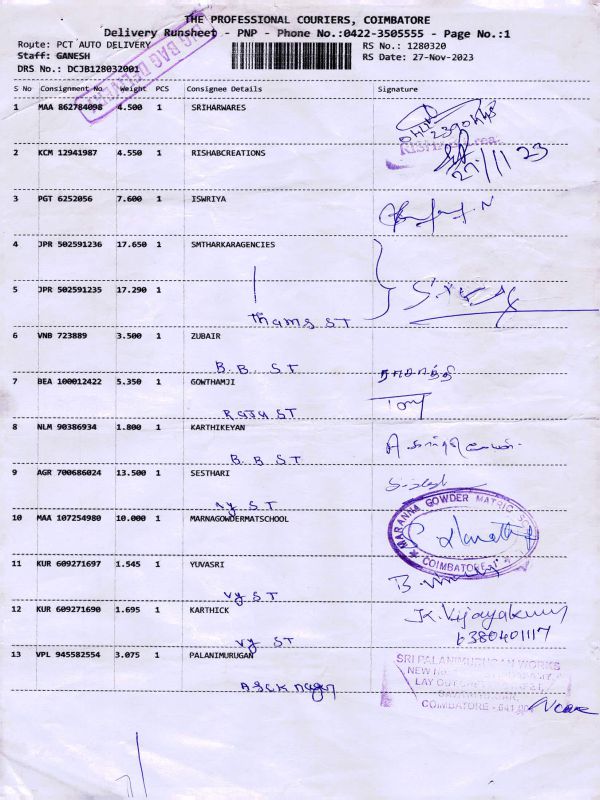 THE PROFESSIONAL COURIERS, COIMBATORE
Delivery Runsheet - PNP - Phone No.:0422-3505555 - Page No.:1
Route: PCT AUTO DELIVERY RS No.: 1280320
Staff: GANESH RS Date: 27-Nov-2023
DRS No.: DCJB128032001
BAG DELIVERY
S No Consignment No Weight PCS Consignee Details Signature
1 MAA 862784098 4.500 1 SRIHARWARES
2 KCM 12941987 4.550 1 RISHABCREATIONS
27/11 23
3 PGT 6252056 7.600 1 ISWRIYA
4 JPR 502591236 17.650 1 SMTHARKARAGENCIES
5 JPR 502591235 17.290 1
Thoms ST
6 VNB 723889 3.500 1 ZUBAIR
B.B. ST
7 BEA 100012422 5.350 1 GOWTHAMJI
Raja ST Tony
8 NLM 90386934 1.800 1 KARTHIKEYAN
B.B ST
9 AGR 700686024 13.500 1 SESTHARI
Vy ST
10 MAA 107254980 10.000 1 MARNAGOWDERMATSCHOOL
MARANNA GOWDER MATRIC
COIMBATORE
11 KUR 609271697 1.545 1 YUVASRI
Vy ST
12 KUR 609271690 1.695 1 KARTHICK
JK.Vijayakumar
Vy ST 6380401117
13 VPL 945582554 3.075 1 PALANIMURUGAN
SRI PALANIMURUGAN WORKS
NEW No.
LAY OUT
COIMBATORE - 641 001